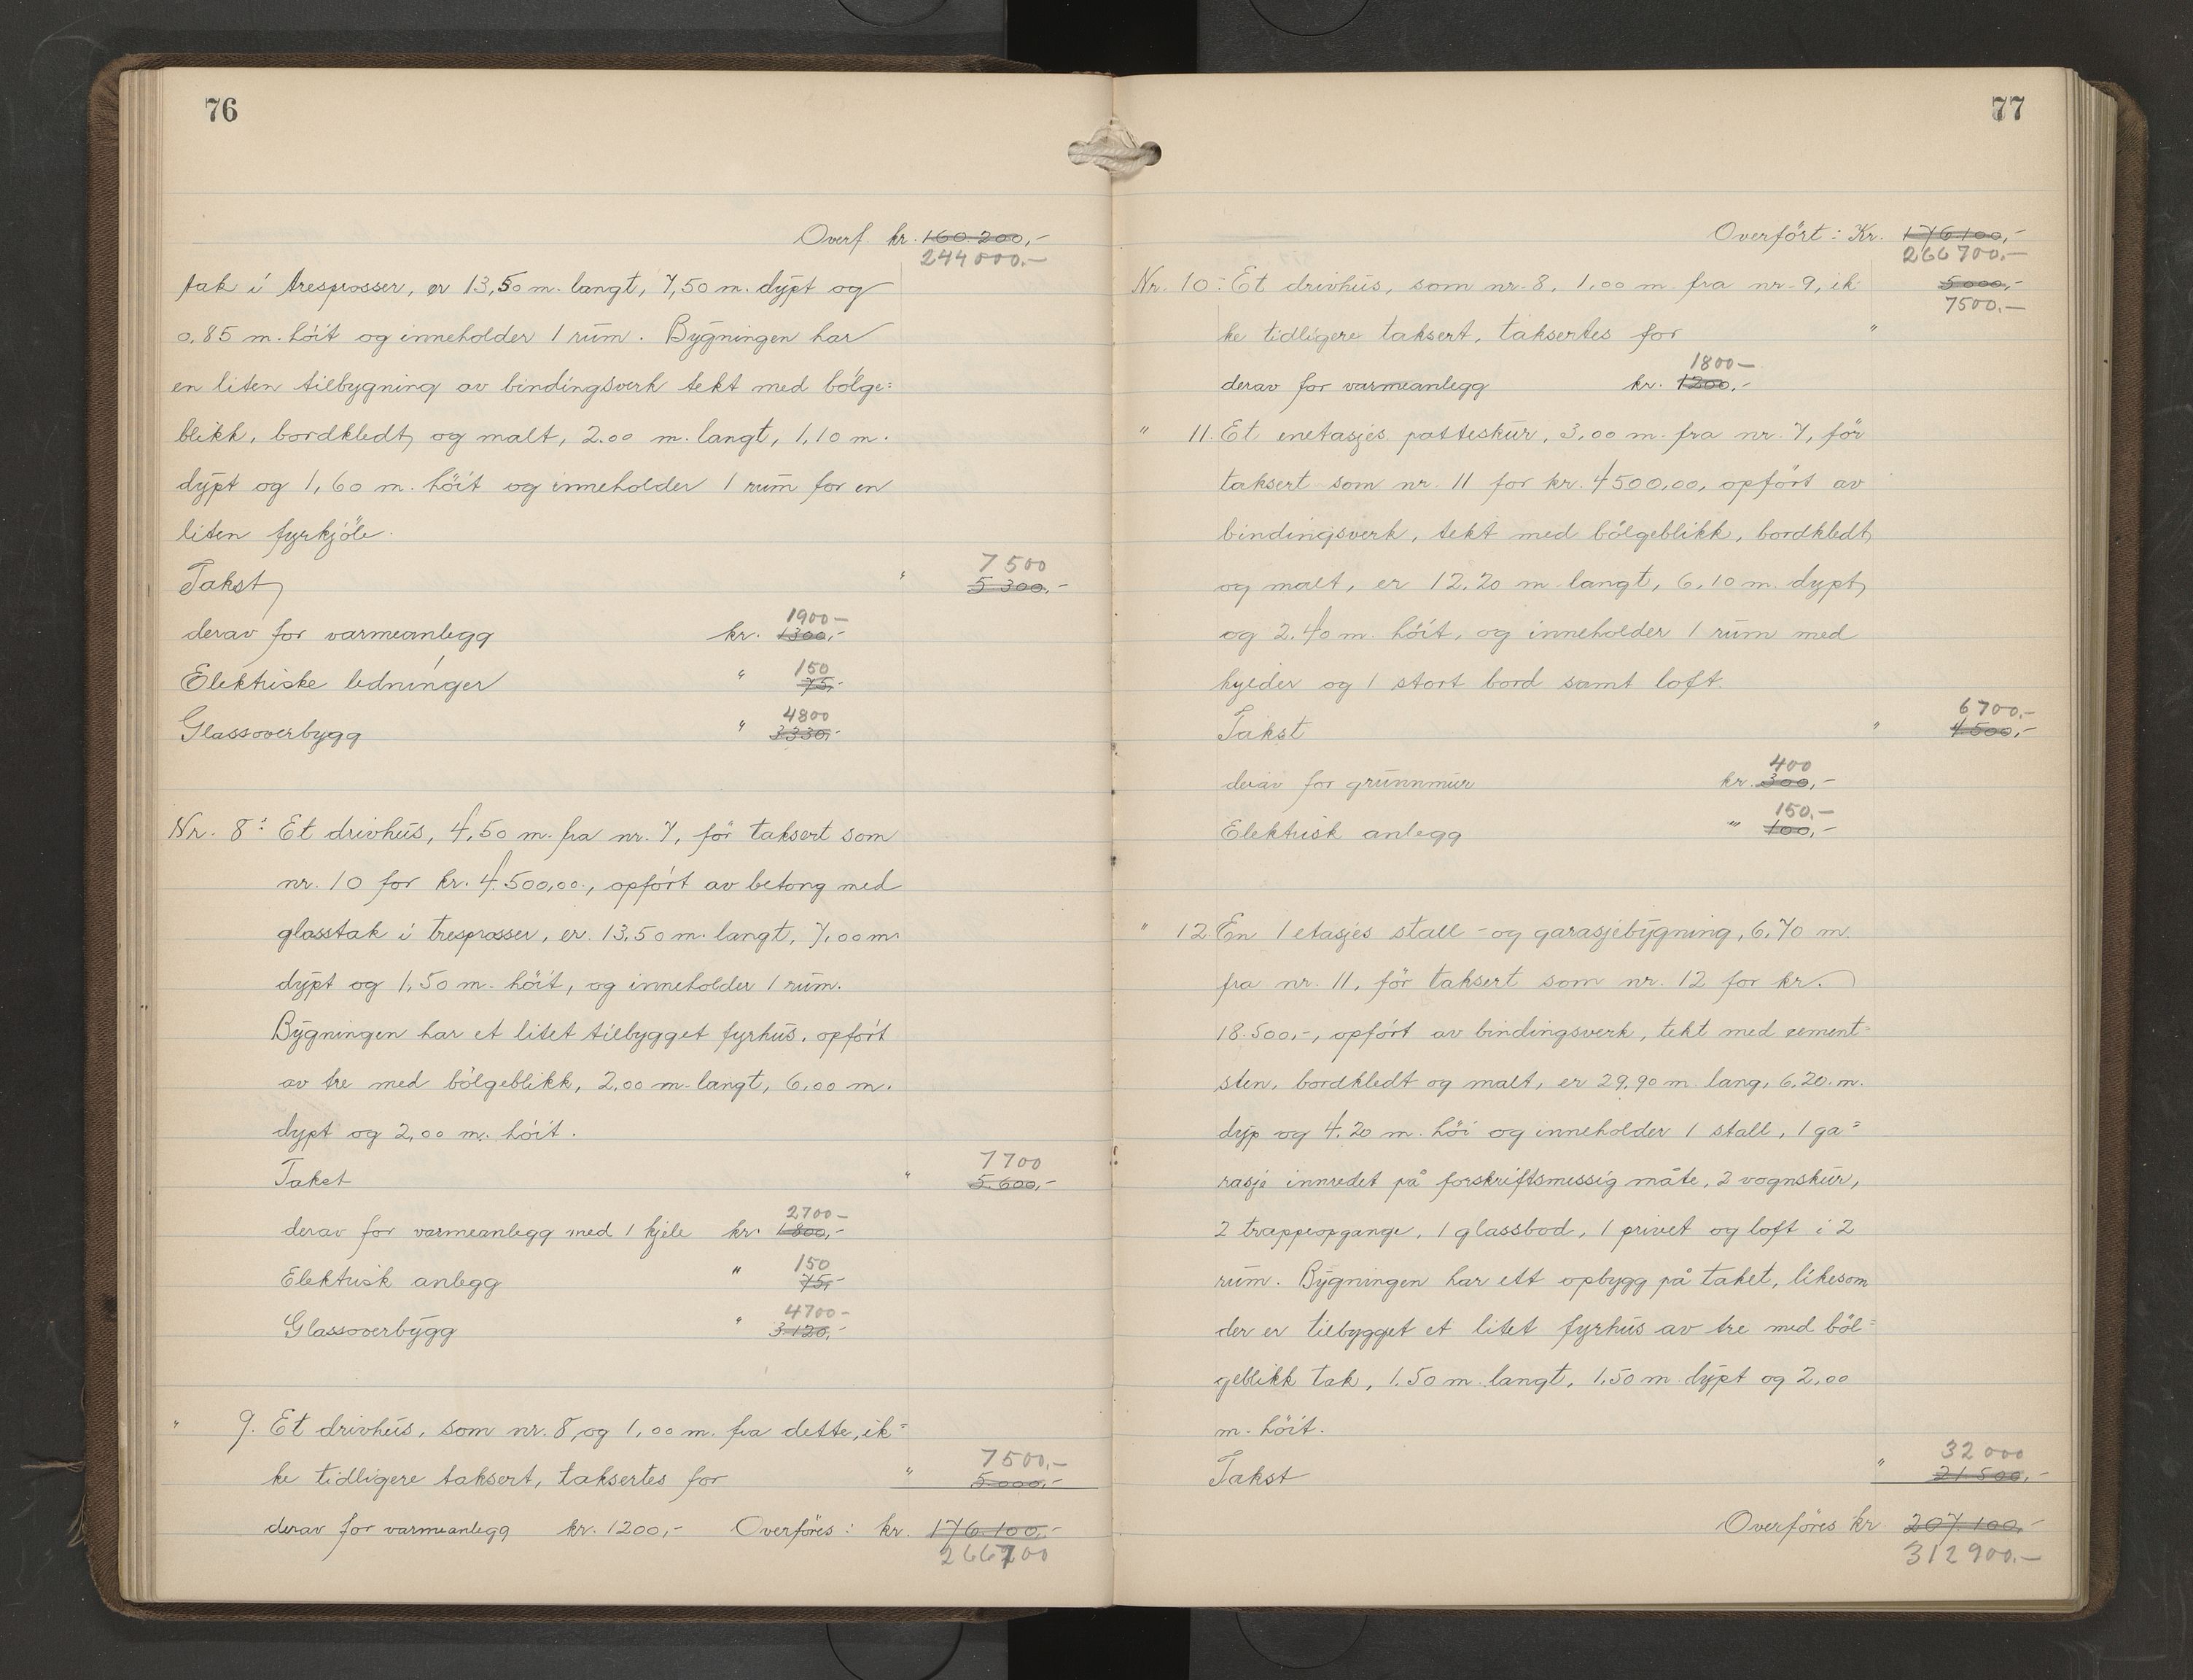 76
Overf. kr. 160.200,-
244000.-
tak i tresprosser, er 13,50 m. langt, 7,50 m. dypt og
0,85 m. höit og inneholder 1 rum. Bygningen har
en liten tilbygning av bindingsverk tekt med bölge=
blikk, bordkledt og malt, 2.00 m. langt, 1,10 m.
dypt og 1,60 m. höit og inneholder 1 rum for en
liten fyrkjöle.
7500
Takst " 5 300,-
1900-
derav for varmeanlegg kr. 1300,-
150
Elektriske ledninger " 75,-
4800
Glassoverbygg " 3330,-
Nr. 8: Et drivhus, 4,50 m. fra nr. 7, för taksert som
nr. 10 for kr. 4.500,00, opfört av betong med
glasstak i tresprosser, er 13,50 m. langt, 7,00 m.
dypt og 1,50 m. höit, og inneholder 1 rum.
Bygningen har et litet tilbygget fyrhus, opfört
av tre med bölgeblikk, 2,00 m. langt, 6,00 m.
dypt og 2,00 m. höit.
7700
Takst " 5.600,-
2700-
derav for varmeanlegg med 1 kjele kr. 1800,-
150
Elektrisk anlegg " 75,-
4700-
Glassoverbygg " 3.120,-
" 9. Et drivhus, som nr. 8, og 1,00 m. fra dette, ik=
7500.-
ke tidligere taksert, taksertes for " 5.000,-
derav for varmeanlegg kr. 1200,- Overföres: kr. 176.100,-
266700
77
Overfört: Kr. 176.100,-
266700.-
Nr. 10: Et drivhus, som nr. 8, 1,00 m. fra nr. 9, ik- 5000,-
7500.-
ke tidligere taksert, taksertes for "
1800-
derav for varmeanlegg kr. 1200,-
" 11. Et enetasjes patteskur, 3,00 m. fra nr. 7, för
taksert som nr. 11 for kr. 4500,00, opfört av
bindingsverk, tekt med bölgeblikk, bordkledt
og malt, er 12.20 m. langt, 6,10 m. dypt
og 2.40 m. höit, og inneholder 1 rum med
hylder og 1 stort bord samt loft.
6700.-
Takst " 4.500,-
400
derav for grunnmur kr. 300,-
150.-
Elektrisk anlegg " 100,-
" 12. En 1 etasjes stall- og garasjebygning, 6,70 m.
fra nr. 11, för taksert som nr. 12 for kr.
18.500,-, opfört av bindingsverk, tekt med cement=
sten, bordkledt og malt, er 29,90 m lang, 6,20 m.
dyp og 4,20 m. höi og inneholder 1 stall, 1 ga=
rasje innredet på forskriftsmessig måte, 2 vognskur,
2 trappeopgange, 1 glassbod, 1 privet og loft i 2
rum. Bygningen har ett opbygg på taket, likesom
der er tilbygget et litet fyrhus av tre med böl=
geblikk tak, 1.50 m. langt, 1,50 m dypt og 2,00
m. höit.
32 000
Takst " 21.500,-
Overföres kr 207.100,-
312900.-